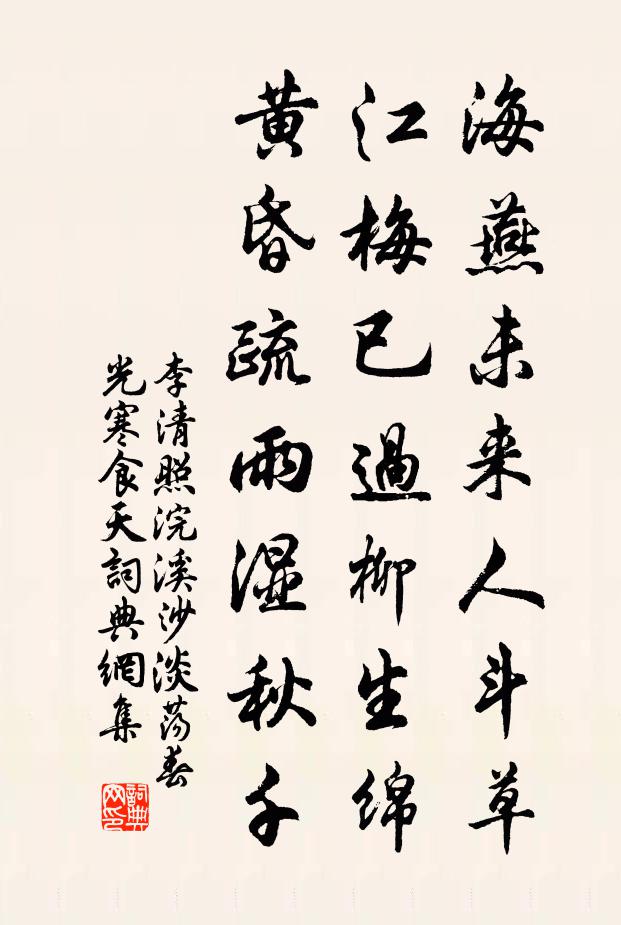 海燕未来人斗草
江梅已過柳生綿
黄昏疏雨湿秋千
李清照浣溪沙淡荡春
光寒食天詞典網集
詞典网印